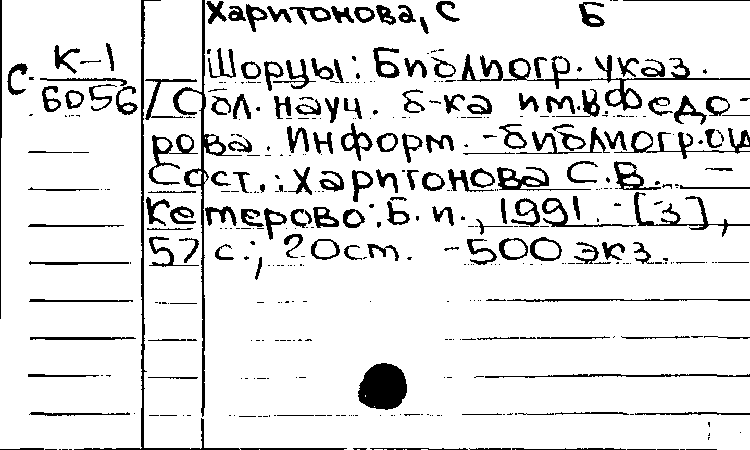 Харитонова, С Б
С. К-1
6056
Шорцы: Библиогр. указ.
/ Обл. науч. б-ка им. В. Федо-
рова. Информ.-библиогр. отд
Сост.: Харитонова С.В. –
Кемерово: Б. и., 1991. - [3],
57 с.; 20 см. - 500 экз.